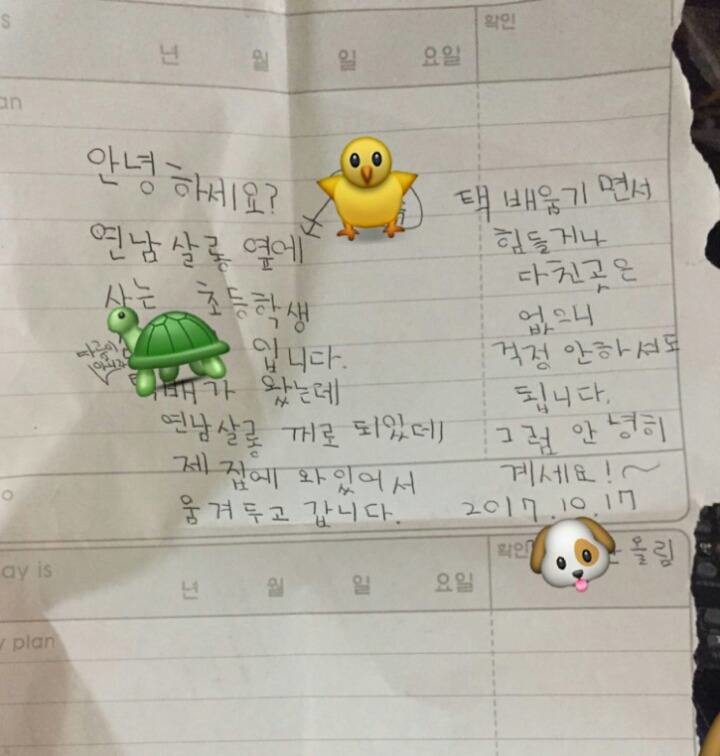 확인
년 월 일 요일
안녕하세요?
연남살롱 옆에
사는 초등학생
입니다.
택배가 왔는데
연남살롱 꺼로 되있데
제 집에 와있어서
움겨두고 갑니다.
택배움기면서
힘들거나
다친곳은
없으니
걱정 안하셔도
됩니다.
그럼 안녕히
계세요!~
2017.10.17
올림
확인
ay is
년 월 일 요일
plan